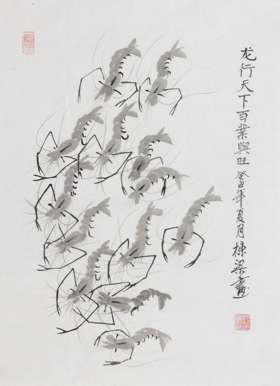 龙行天下百業興旺
癸未年夏月棟梁畫